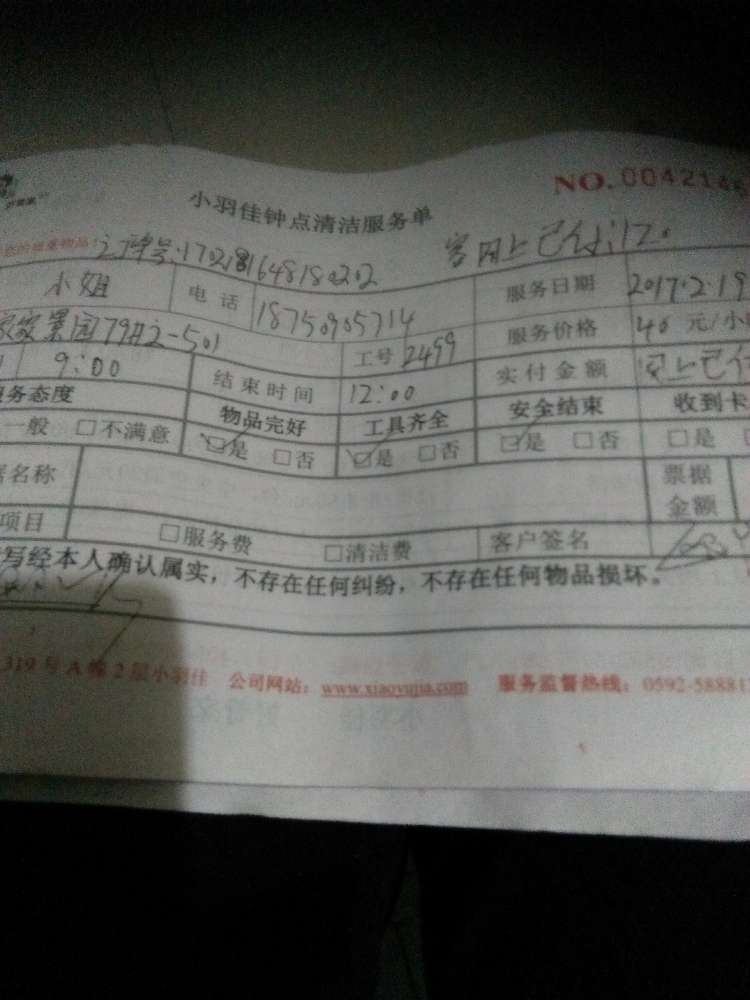 NO. 004214
小羽佳钟点清洁服务单
客网上已付:120
小姐 电话 18750905714 服务日期 2017.2.19
景园79#2-501 工号 2499 服务价格 40元/小
9:00 结束时间 12:00 实付金额 网上已付
务态度 物品完好 工具齐全 安全结束 收到卡
一般 □不满意 ☑是 □否 ☑是 □否 ☑是 □否 □是
名称 票据金额
项目 □服务费 □清洁费 客户签名
写经本人确认属实，不存在任何纠纷，不存在任何物品损坏。
319号A栋2层小羽佳 公司网站：www.xiaoyujia.com 服务监督热线：0592-58881